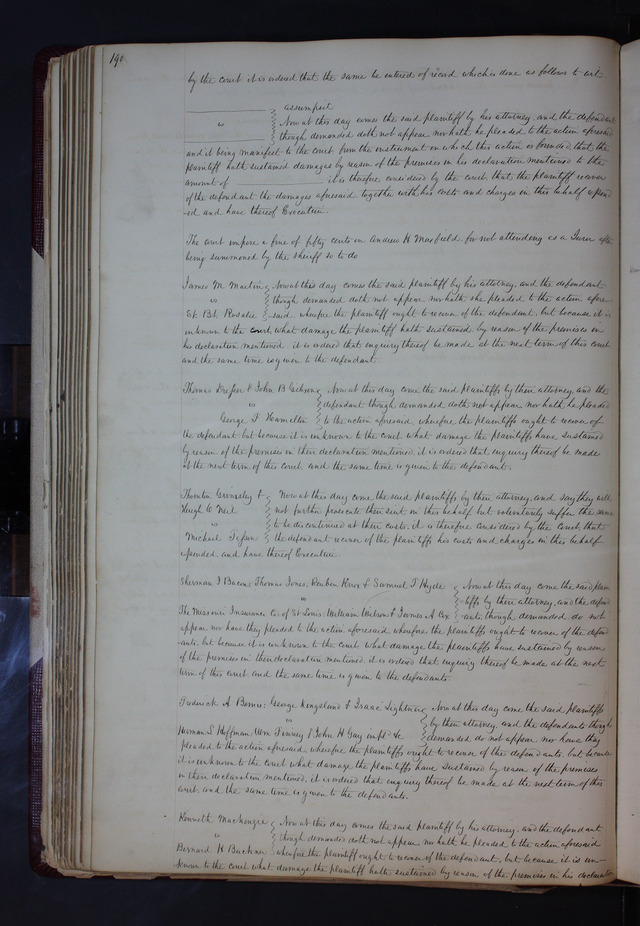 190
by the court it is ordered that the same be entered of record which is done as follows to wit
assumpsit
vs Now at this day comes the said plaintiff by his attorney, and the defendant
though demanded doth not appear nor hath he pleaded to the action aforesaid
and it being manifest to the court from the instrument on which this action is founded that the
plaintiff hath sustained damages by reason of the premises in his declaration mentioned to the
amount of it is therefore considered by the court that the plaintiff recover
of the defendant the damages aforesaid together with his costs and charges in this behalf expend
-ed and have thereof Execution.
The court impose a fine of fifty cents on Andrew H Maxfield for not attending as a Juror after
being summoned by the sheriff so to do
James M Martin Now at this day comes the said plaintiff by his attorney, and the defendant
vs though demanded doth not appear nor hath she pleaded to the action afore
St. Bt. Rosalie -said, wherefore the plaintiff ought to recover of the defendant, but because it is
unknown to the court, what damage the plaintiff hath sustained by reason of the premises in
his declaration mentioned it is ordered that enquiry thereof be made at the next term of this court
and the same time is given to the defendant.
Thomas & John B Jackson Now at this day come the said plaintiffs by their attorney, and the
vs defendant though demanded doth not appear nor hath he pleaded
George F Hamilton to the action aforesaid, wherefore the plaintiffs ought to recover of
the defendant but because it is unknown to the court what damage the plaintiffs have sustained
by reason of the premises in their declaration mentioned, it is ordered that enquiry thereof be made
at the next term of this court and the same time is given to the defendant.
Thornton Grimsley & Now at this day come the said plaintiffs by their attorney, and say they will
Hugh C Neil not further prosecute their suit in this behalf but voluntarily suffer the same
vs to be discontinued at their costs, it is therefore considered by the Court, that
Michael the defendant recover of the plaintiffs his costs and charges in this behalf
expended and have thereof Execution.
Sherman J Bacon, Thomas Jones, Reuben Knox & Samuel T Hyde Now at this day come the said plain
vs -tiffs by their attorney, and the defend
The Missouri Insurance Co. of St Louis, William Wilson & James A Cox -ants though demanded do not
appear nor have they pleaded to the action aforesaid wherefore the plaintiffs ought to recover of the defend
-ants but because it is unknown to the court what damage the plaintiffs have sustained by reason
of the premises in their declaration mentioned it is ordered that enquiry thereof be made at the next
term of this court and the same time is given to the defendants.
Frederick A George Kingsland & Isaac Lightner Now at this day come the said plaintiffs
vs by their attorney, and the defendants though
Herman L Hoffman, Wm Finney & John H Gay impld &c demanded do not appear nor have they
pleaded to the action aforesaid, wherefore the plaintiffs ought to recover of the defendants, but because
it is unknown to the court what damage the plaintiffs have sustained by reason of the premises
in their declaration mentioned, it is ordered that enquiry thereof be made at the next term of this
court and the same time is given to the defendants.
Kenneth Mackenzie Now at this day comes the said plaintiff by his attorney, and the defendant
vs though demanded doth not appear nor hath he pleaded to the action aforesaid
Bernard H Buckner wherefore the plaintiff ought to recover of the defendant, but because it is un-
known to the court what damage the plaintiff hath sustained by reason of the premises in his declaration